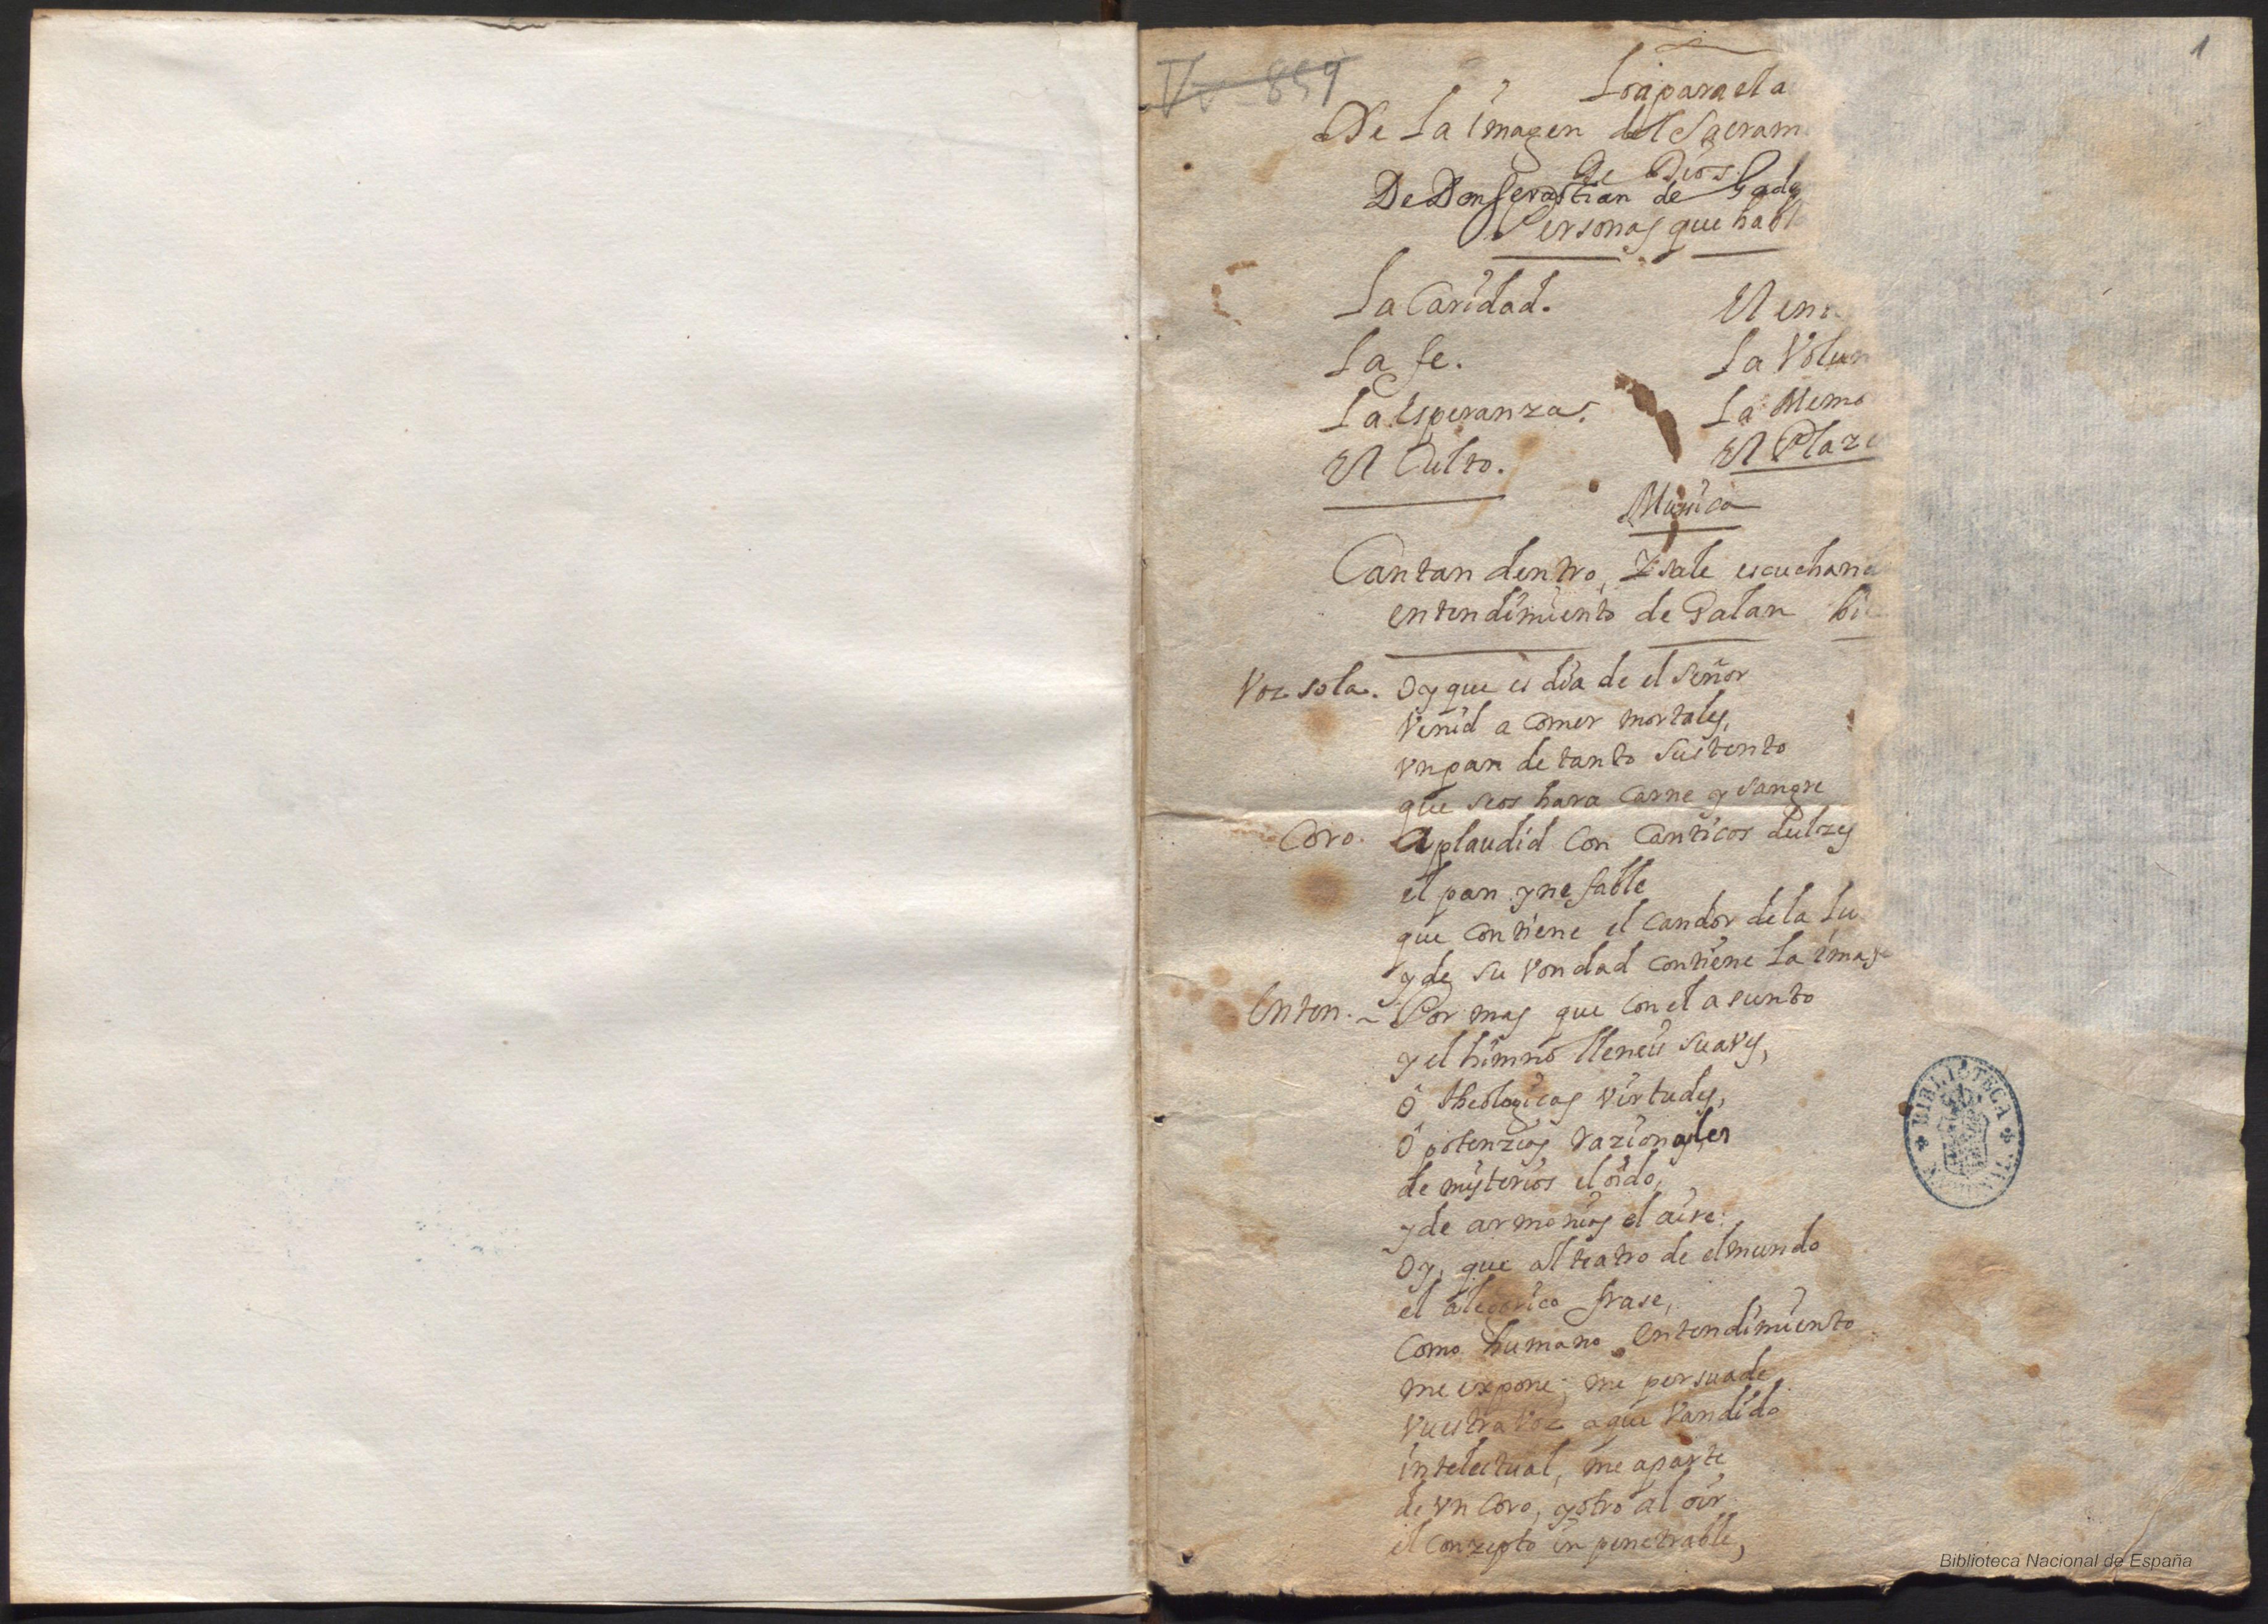 1
Vv-859
Loa para el a
De La imagen del Sacram
de Dios.
De Don Sevastian de Gada
Personas que habla
La Caridad.
El en
La fe.
La Volun
La esperanza.
La Memo
El Culto.
El Plaze
Musica
Cantan dentro, Y sale escuchand
entendimiento de Galan bi
Voz sola. Oy que es dia de el Señor
Venid a comer mortales,
Vn pan de tanto sustento
que seos hara carne y sangre
Coro. Aplaudid con canticos dulzes
el pan ynefable
que contiene el candor de la Lu
y de su Vondad contiene La imaje
Enten. Por mas que con el asunto
y el himno lleneis suaves,
ô theologicas Virtudes,
ô potenzias razionales
de misterios el oido,
y de armonias el aire:
Oy, que al teatro de el mundo
el alegorico frase,
como humano entendimiento
me expone; me persuade
Vuestra Voz a que Vandido
intelectual, me aparte
de Vn Coro, y otro al oir
el conzepto inpenetrable,
BIBLIOTECA
Biblioteca Nacional de España